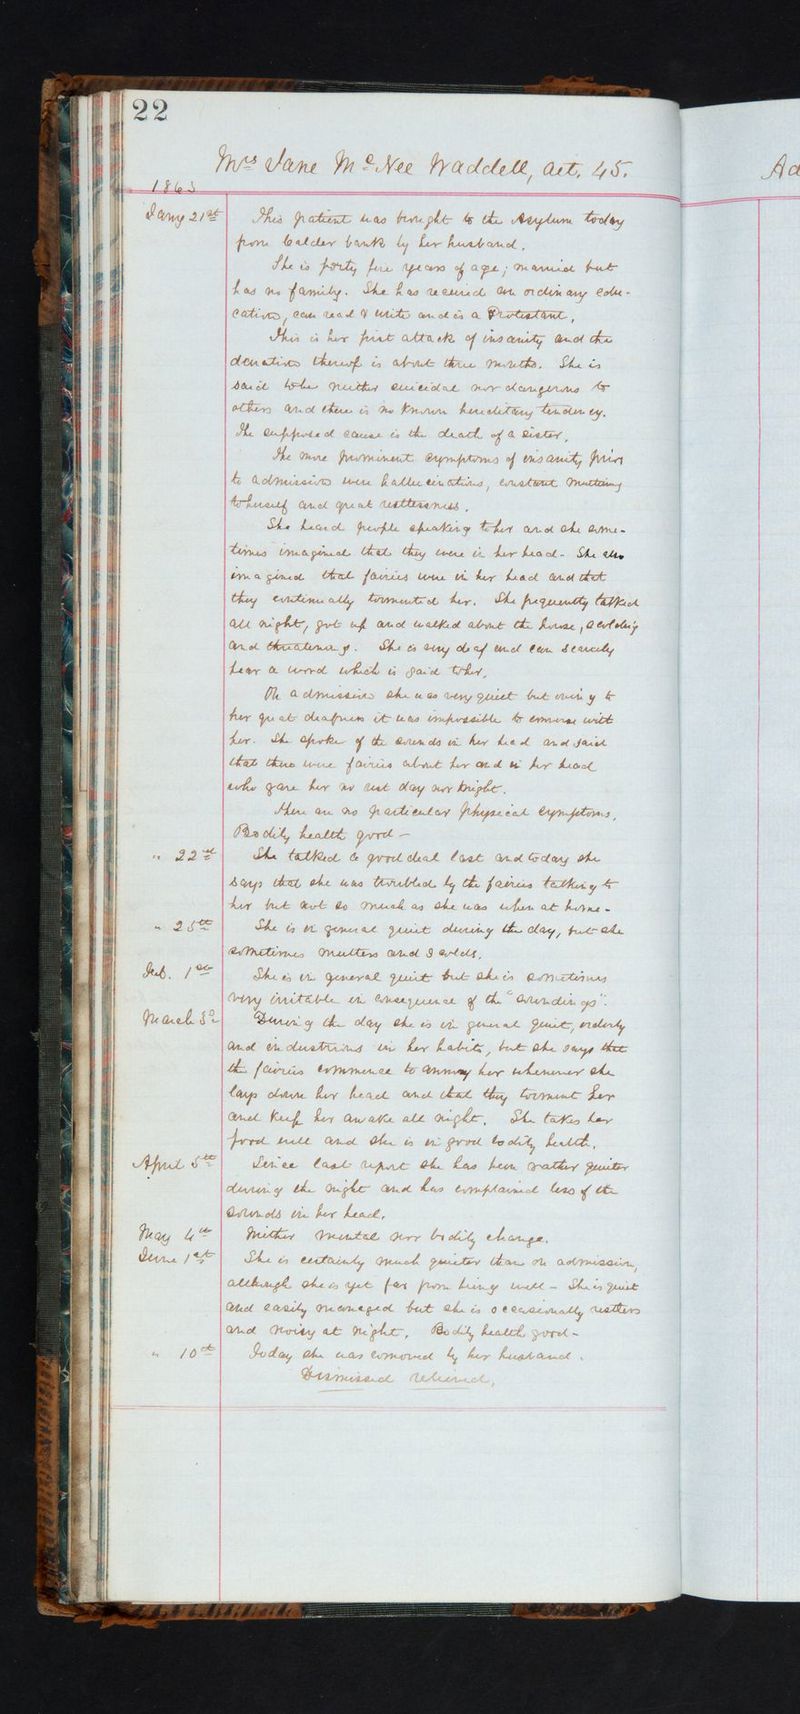 22
Mrs Jane McNee Waddell, aet. 45.
Ad
1863
Jany 21st This patient was brought to the Asylum today
from Calder bank by her husband.
She is forty five years of age; married but
has no family. She has received an ordinary edu-
cation, can read & write and is a Protestant.
This is her first attack of insanity and the
duration thereof is about three months. She is
said to be neither suicidal nor dangerous to
others and there is no known hereditary tendency.
The supposed cause is the death of a sister.
The more prominent symptoms of insanity prior
to admission were hallucinations, constant muttering
to herself and great restlessness.
She heard people speaking to her and she some-
times imagined that they were in her head - She also
imagined that fairies were in her head and that
they continually tormented her. She frequently talked
all night, got up and walked about the house, scolding
and threatening. She is very deaf and can scarcely
hear a word which is said to her.
On admission she was very quiet but owing to
her great deafness it was impossible to converse with
her. She spoke of the sounds in her head and said
that there were fairies about her and in her head
who gave her no rest day nor knight.
There are no particular physical symptoms.
Bodily health good -
" 22nd She talked a good deal last and today she
says that she was troubled by the fairies talking to
her but not so much as she was when at home -
" 25th She is in general quiet during the day, but she
sometimes mutters and scolds.
Feb. 1st She is in general quiet but she is sometimes
very irritable in consequence of the "soundings".
March 3d During the day she is in general quiet, orderly
and industrious in her habits, but she says that
the fairies commence to annoy her whenever she
lays down her head and that they torment her
and keep her awake all night. She takes her
food well and she is in good bodily health.
April 5th Since last report she has been rather quieter
during the night and has complained less of the
sounds in her head.
May 4th Neither mental nor bodily change.
June 1st She is certainly much quieter than on admission,
although she is yet far from being well - She is quiet
and easily managed but she is occasionally restless
and noisy at night. Bodily health good -
" 10th Today she was removed by her husband.
Dismissed relieved.